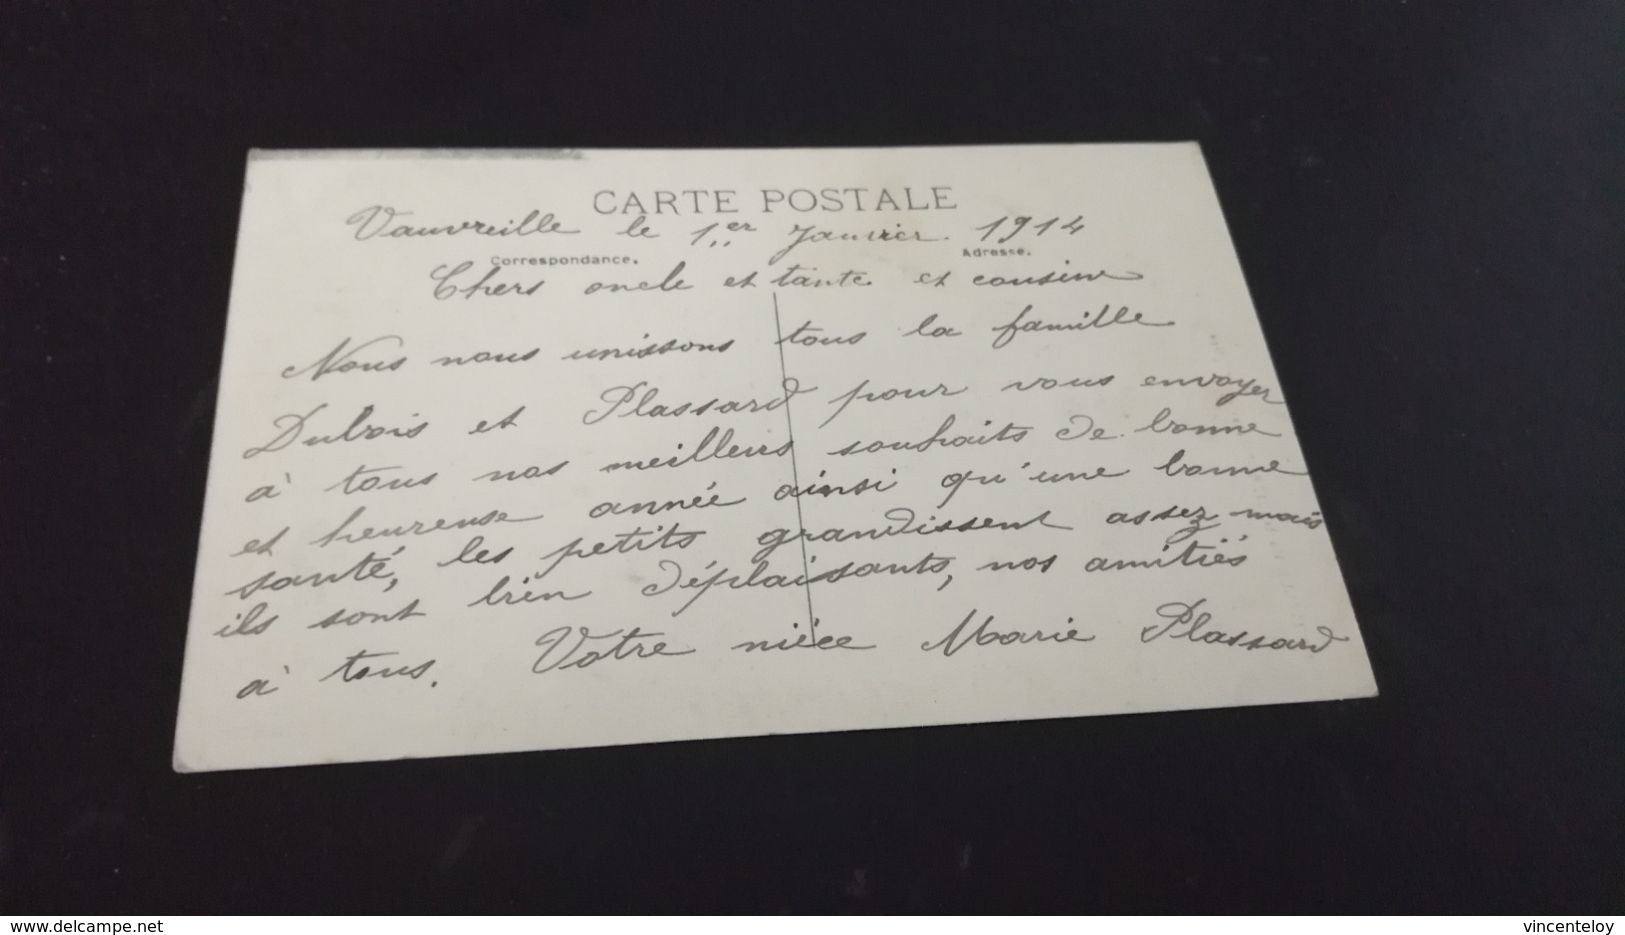 CARTE POSTALE
Vauvreille le 1er Janvier 1914
Correspondance.
Adresse.
Chers oncle et tante et cousine
Nous nous unissons tous la famille
Dubois et Plassard pour vous envoyer
à tous nos meilleurs souhaits de bonne
et heureuse année ainsi qu'une bonne
santé, les petits grandissent assez mais
ils sont bien déplaisants, nos amitiés
à tous. Votre nièce Marie Plassard
vincenteloy